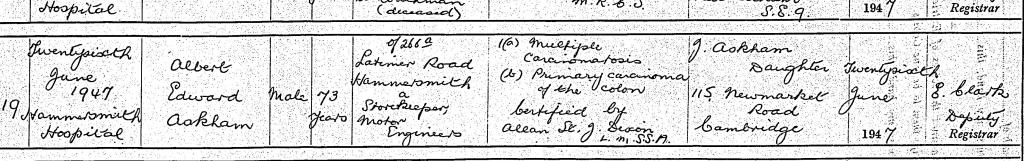 Hospital
(deceased)
M.R.C.S.
S.E.9.
1947
Registrar
19
Twentysixth
June
1947
Hammersmith
Hospital
Albert
Edward
Askham
Male
73
years
of 266a
Latimer Road
Hammersmith
a
Storekeeper,
Motor
Engineers
1(a) Multiple
Carcinomatosis
(b) Primary carcinoma
of the colon
Certified by
Allan St. J. Dixon
L. M. S.S.A.
J. Askham
Daughter
115 Newmarket
Road
Cambridge
Twentysixth
June
1947
E. Clark
Deputy
Registrar